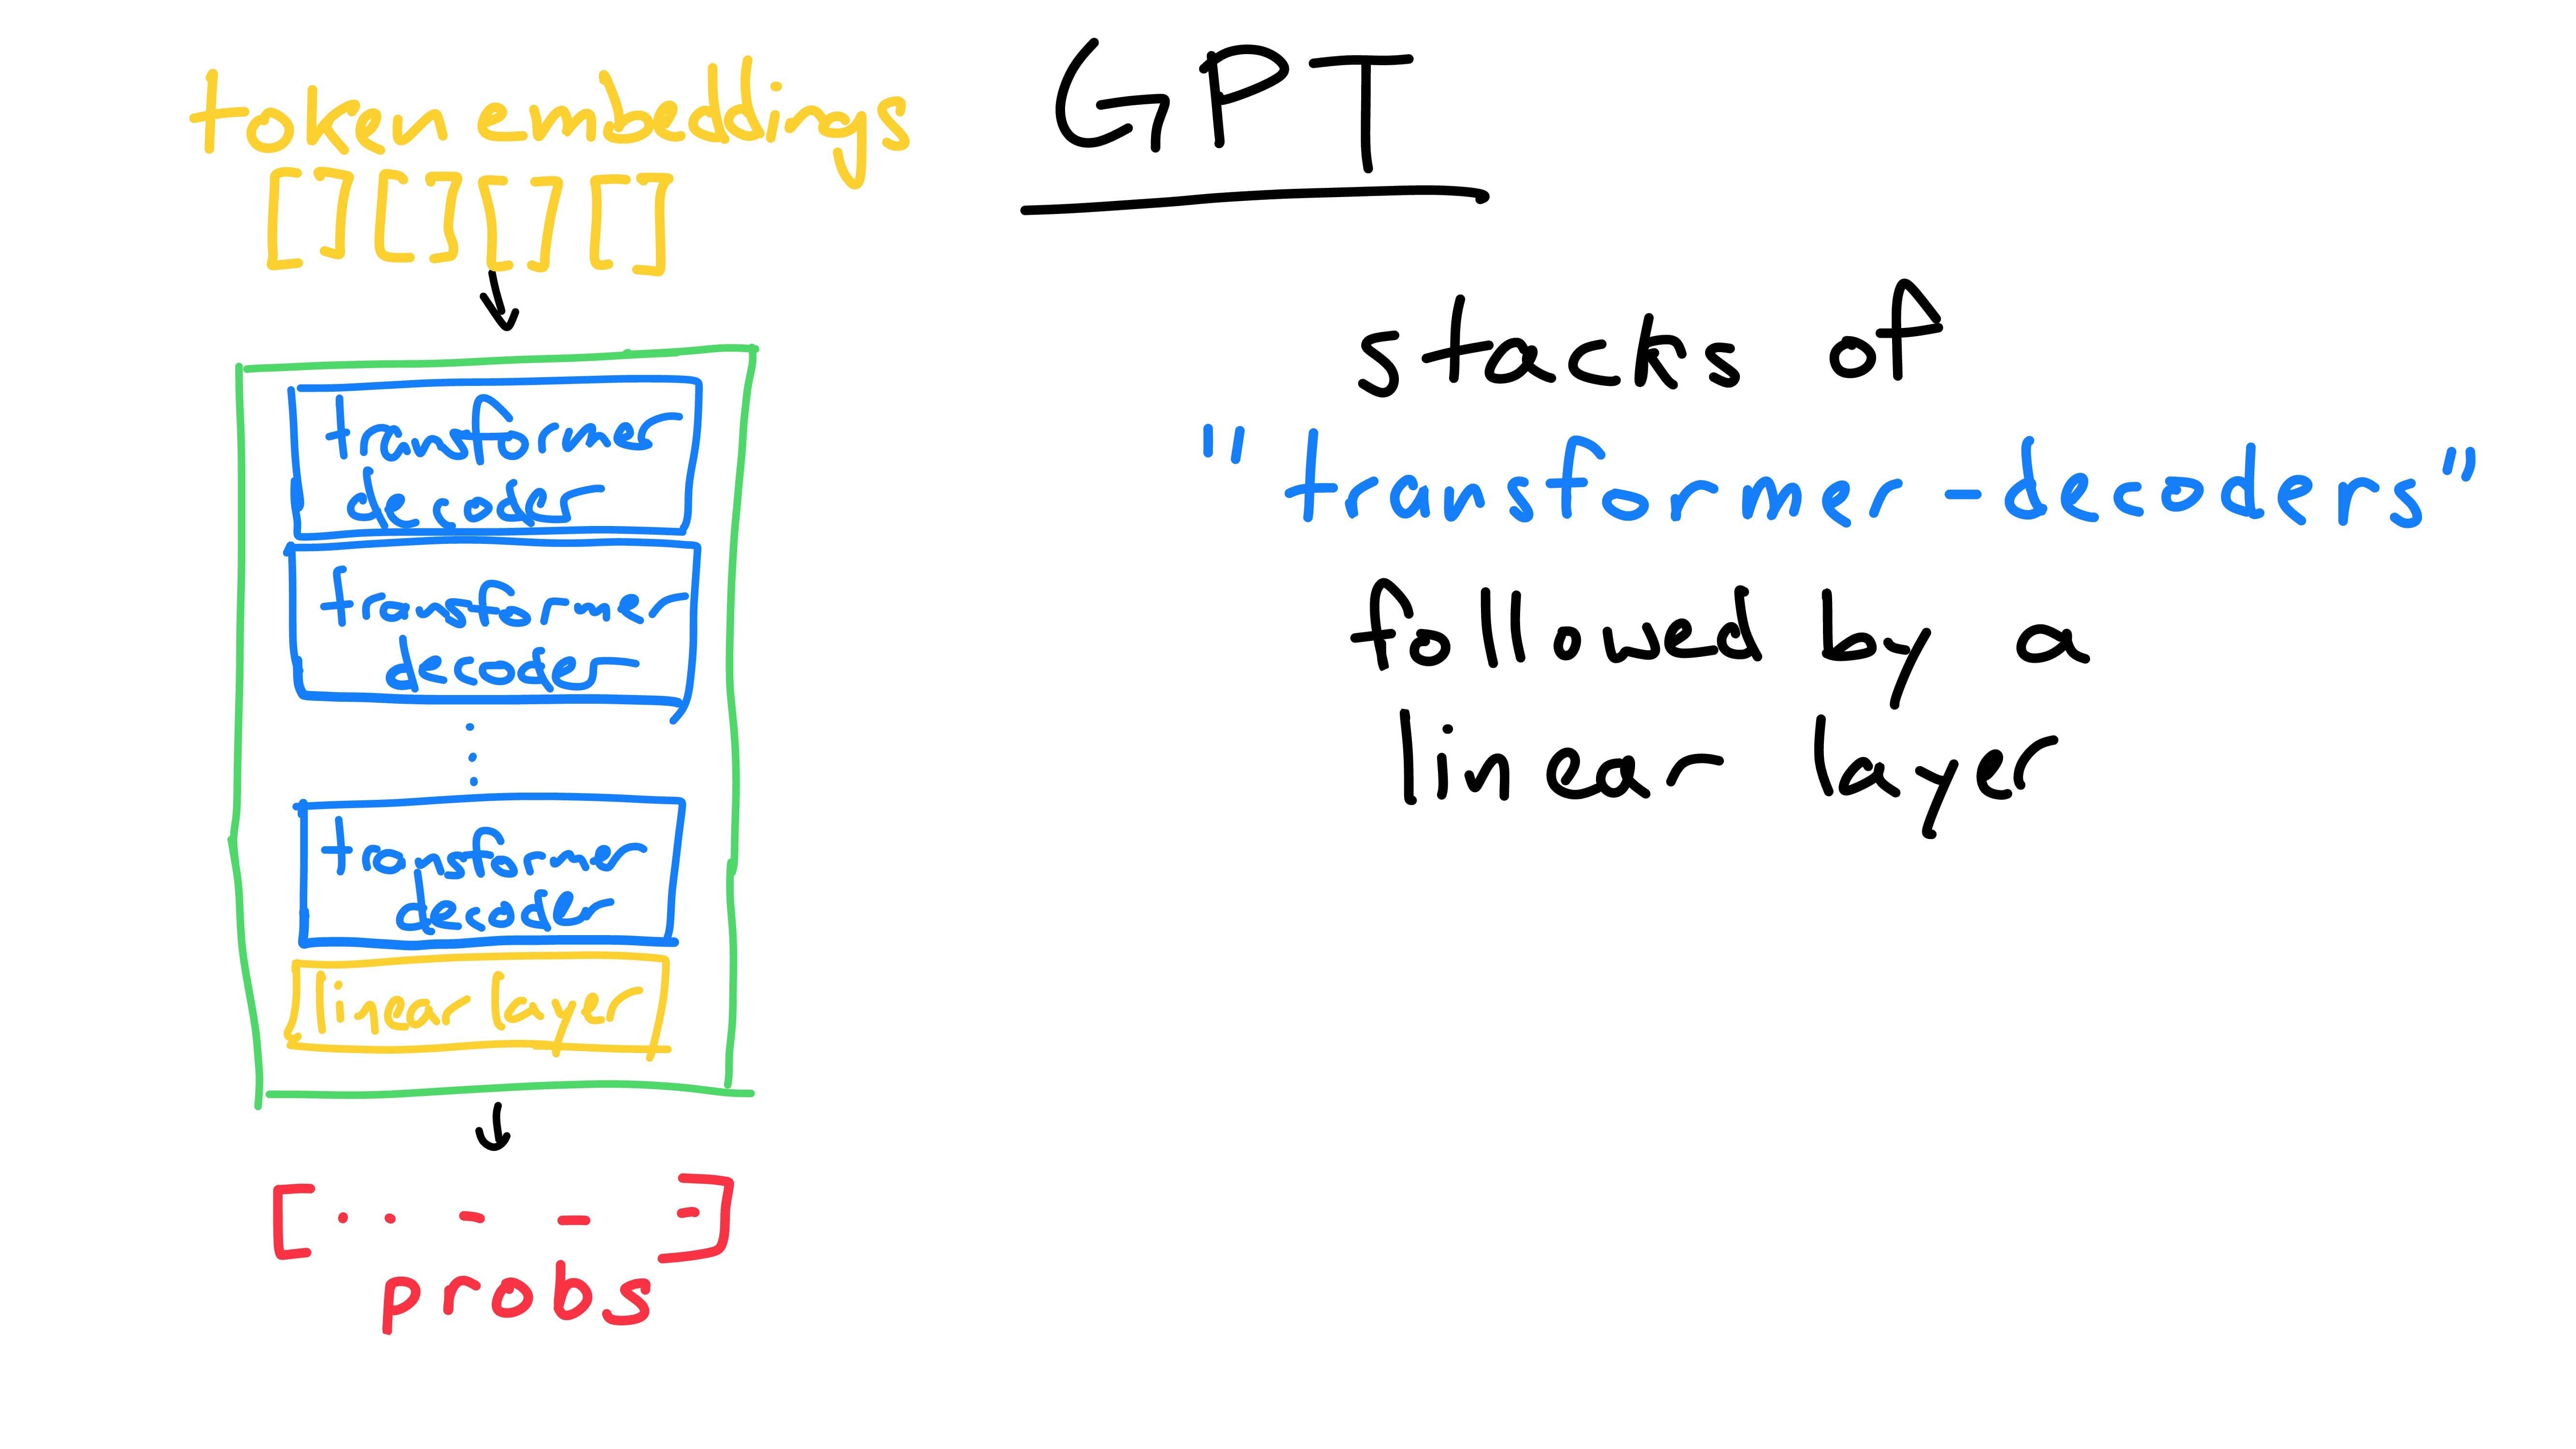 GPT
token embeddings
[] [] [] []
transformer
decoder
transformer
decoder
transformer
decoder
linear layer
[·· - - -]
probs
stacks of
"transformer-decoders"
followed by a
linear layer